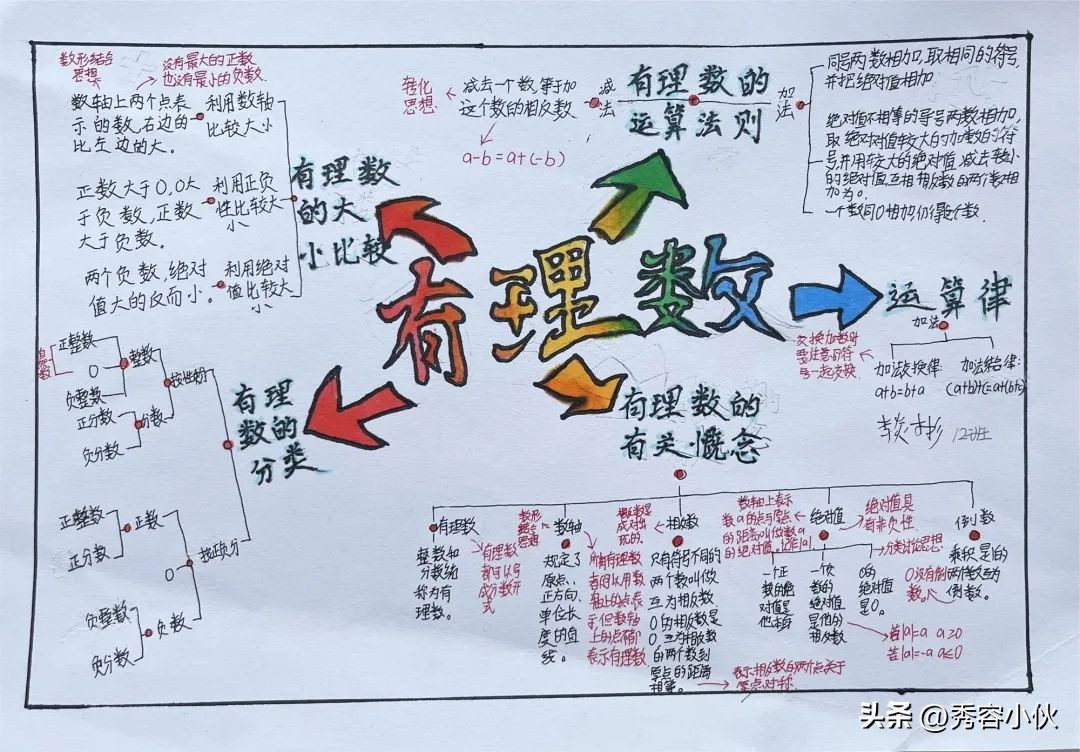 有理数
有理数的大
小比较
利用数轴
比较大小
数轴上两个点表
示的数,右边的
比左边的大。
数形结合
思想
没有最大的正数
也没有最小的负数.
利用正负
性比较大
小
正数大于0,0大
于负数,正数
大于负数。
利用绝对
值比较大
小
两个负数,绝对
值大的反而小。
有理数的
运算法则
减法
减去一个数,等于加
这个数的相反数
转化
思想
a-b=a+(-b)
加法
同号两数相加,取相同的符号,
并把绝对值相加.
绝对值不相等的异号两数相加,
取绝对值较大的加数的符
号,并用较大的绝对值减去较小
的绝对值,互为相反数的两个数相
加为0.
一个数同0相加,仍得这个数.
运算律
加法
交换加数时
要注意同符
号一起交换.
加法交换律:
a+b=b+a
加法结合律:
(a+b)+c=a+(b+c)
12班
有理
数的
分类
按性的分
整数
正整数
0
负整数
自然数
分数
正分数
负分数
按正负分
正数
正整数
正分数
0
负数
负整数
负分数
有理数的
有关概念
有理数
整数和
分数统
称为有
理数。
有理数
都可以写
成分数形
式
数轴
数形
结合
思想
规定了
原点、
正方向、
单位长
度的直
线。
所有有理数
都可以用数
轴上的点表
示但数轴
上的点不都
表示有理数
相反数
相反数是
成对出
现的.
只有符号不同的
两个数叫做
互为相反数
0的相反数是
0,互为相反数
的两个数到
原点的距离
相等。
表示相反数的两个点关于
原点对称.
绝对值
数轴上表示
数a的点与原点
的距离叫做数a
的绝对值.记作|a|
绝对值具
有非负性.
分类讨论思想
一个正
数的绝
对值是
它本身
一个负
数的
绝对值
是他的
相反数
0的
绝对值
是0.
若|a|=a a≥0
若|a|=-a a≤0
倒数
乘积是1的
两个数互为
倒数.
0没有倒
数.
头条 @秀容小伙